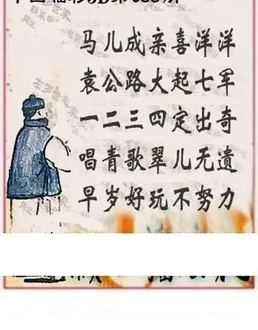 马儿成亲喜洋洋
袁公路大起七军
一二三四定出奇
唱青歌翠儿无遗
早岁好玩不努力